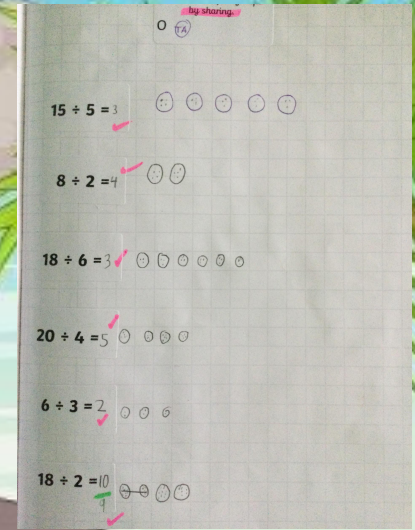 by sharing.
TA
15 ÷ 5 = 3
8 ÷ 2 = 4
18 ÷ 6 = 3
20 ÷ 4 = 5
6 ÷ 3 = 2
18 ÷ 2 = 10
9